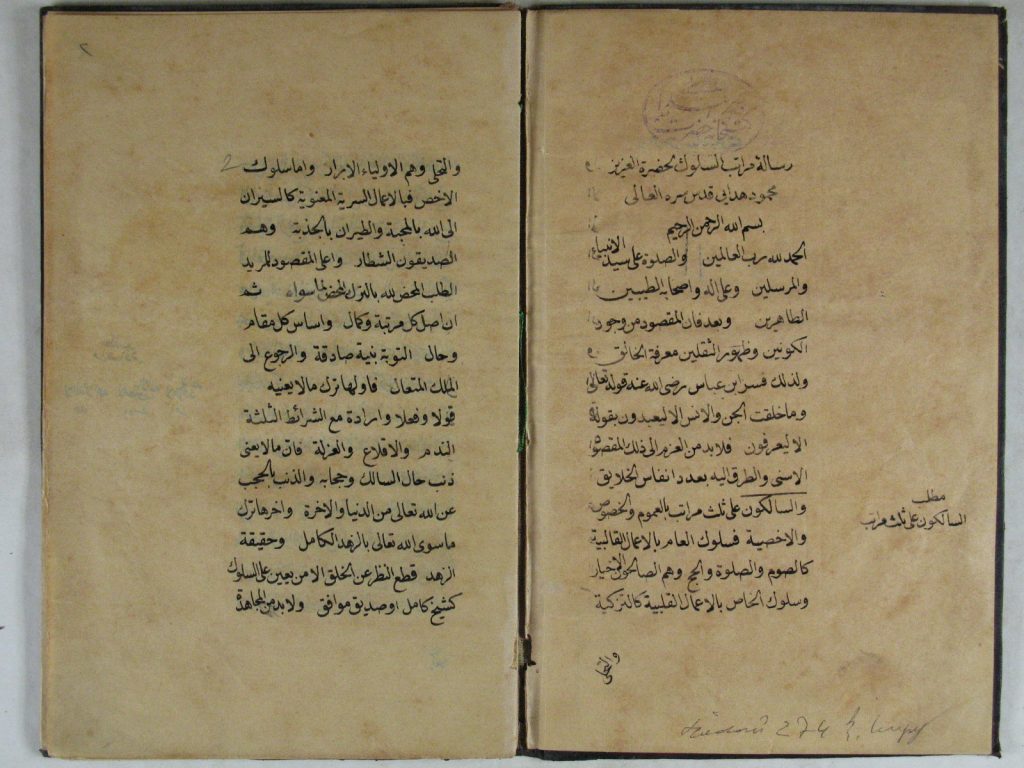 رسالة مراتب السلوك لحضرة العزيز
محمود هدايى قدس سره العالى
بسم الله الرحمن الرحيم
الحمد لله رب العالمين والصلوة على سيد الانبياء
والمرسلين وعلى اله واصحابه الطيبين
الطاهرين وبعد فان المقصود من وجود
الكونين وظهور الثقلين معرفة الخالق
ولذلك فسر ابن عباس رضى الله عنه قوله تعالى
وما خلقت الجن والانس الا ليعبدون بقوله
الا ليعرفون فلا بد من العزم الى ذلك المقصود
الاسنى والطرق اليه بعدد انفاس الخلايق
والسالكون على ثلث مراتب بالعموم والخصوص
والاخصية فسلوك العام بالاعمال القالبية
كالصوم والصلوة والحج وهم الصالحون الاخيار
وسلوك الخاص بالاعمال القلبية كالتزكية
والتحلى
مطلب
السالكون على ثلث مراتب
274
٢
والتحلى وهم الاولياء الابرار واما سلوك
2
الاخص فبالاعمال السرية المعنوية كالسيران
الى الله بالمحبة والطيران بالجذبة وهم
الصديقون الشطار واعلى المقصود للمريد
الطلب المحض لله بالترك المحض لما سواه ثم
ان اصل كل مرتبة وكمال واساس كل مقام
وحال التوبة بنية صادقة والرجوع الى
الملك المتعال فاولها ترك ما لا يعنيه
قولا وفعلا وارادة مع الشرائط الثلثة
الندم والاقلاع والعزلة فان ما لا يعنى
ذنب حال السالك وحجابه والذنب يحجب
عن الله تعالى من الدنيا والاخرة واخرها ترك
ما سوى الله تعالى بالزهد الكامل وحقيقة
الزهد قطع النظر عن الخلق الا من يعين على السلوك
كشيخ كامل او صديق موافق ولا بد من المجاهدة